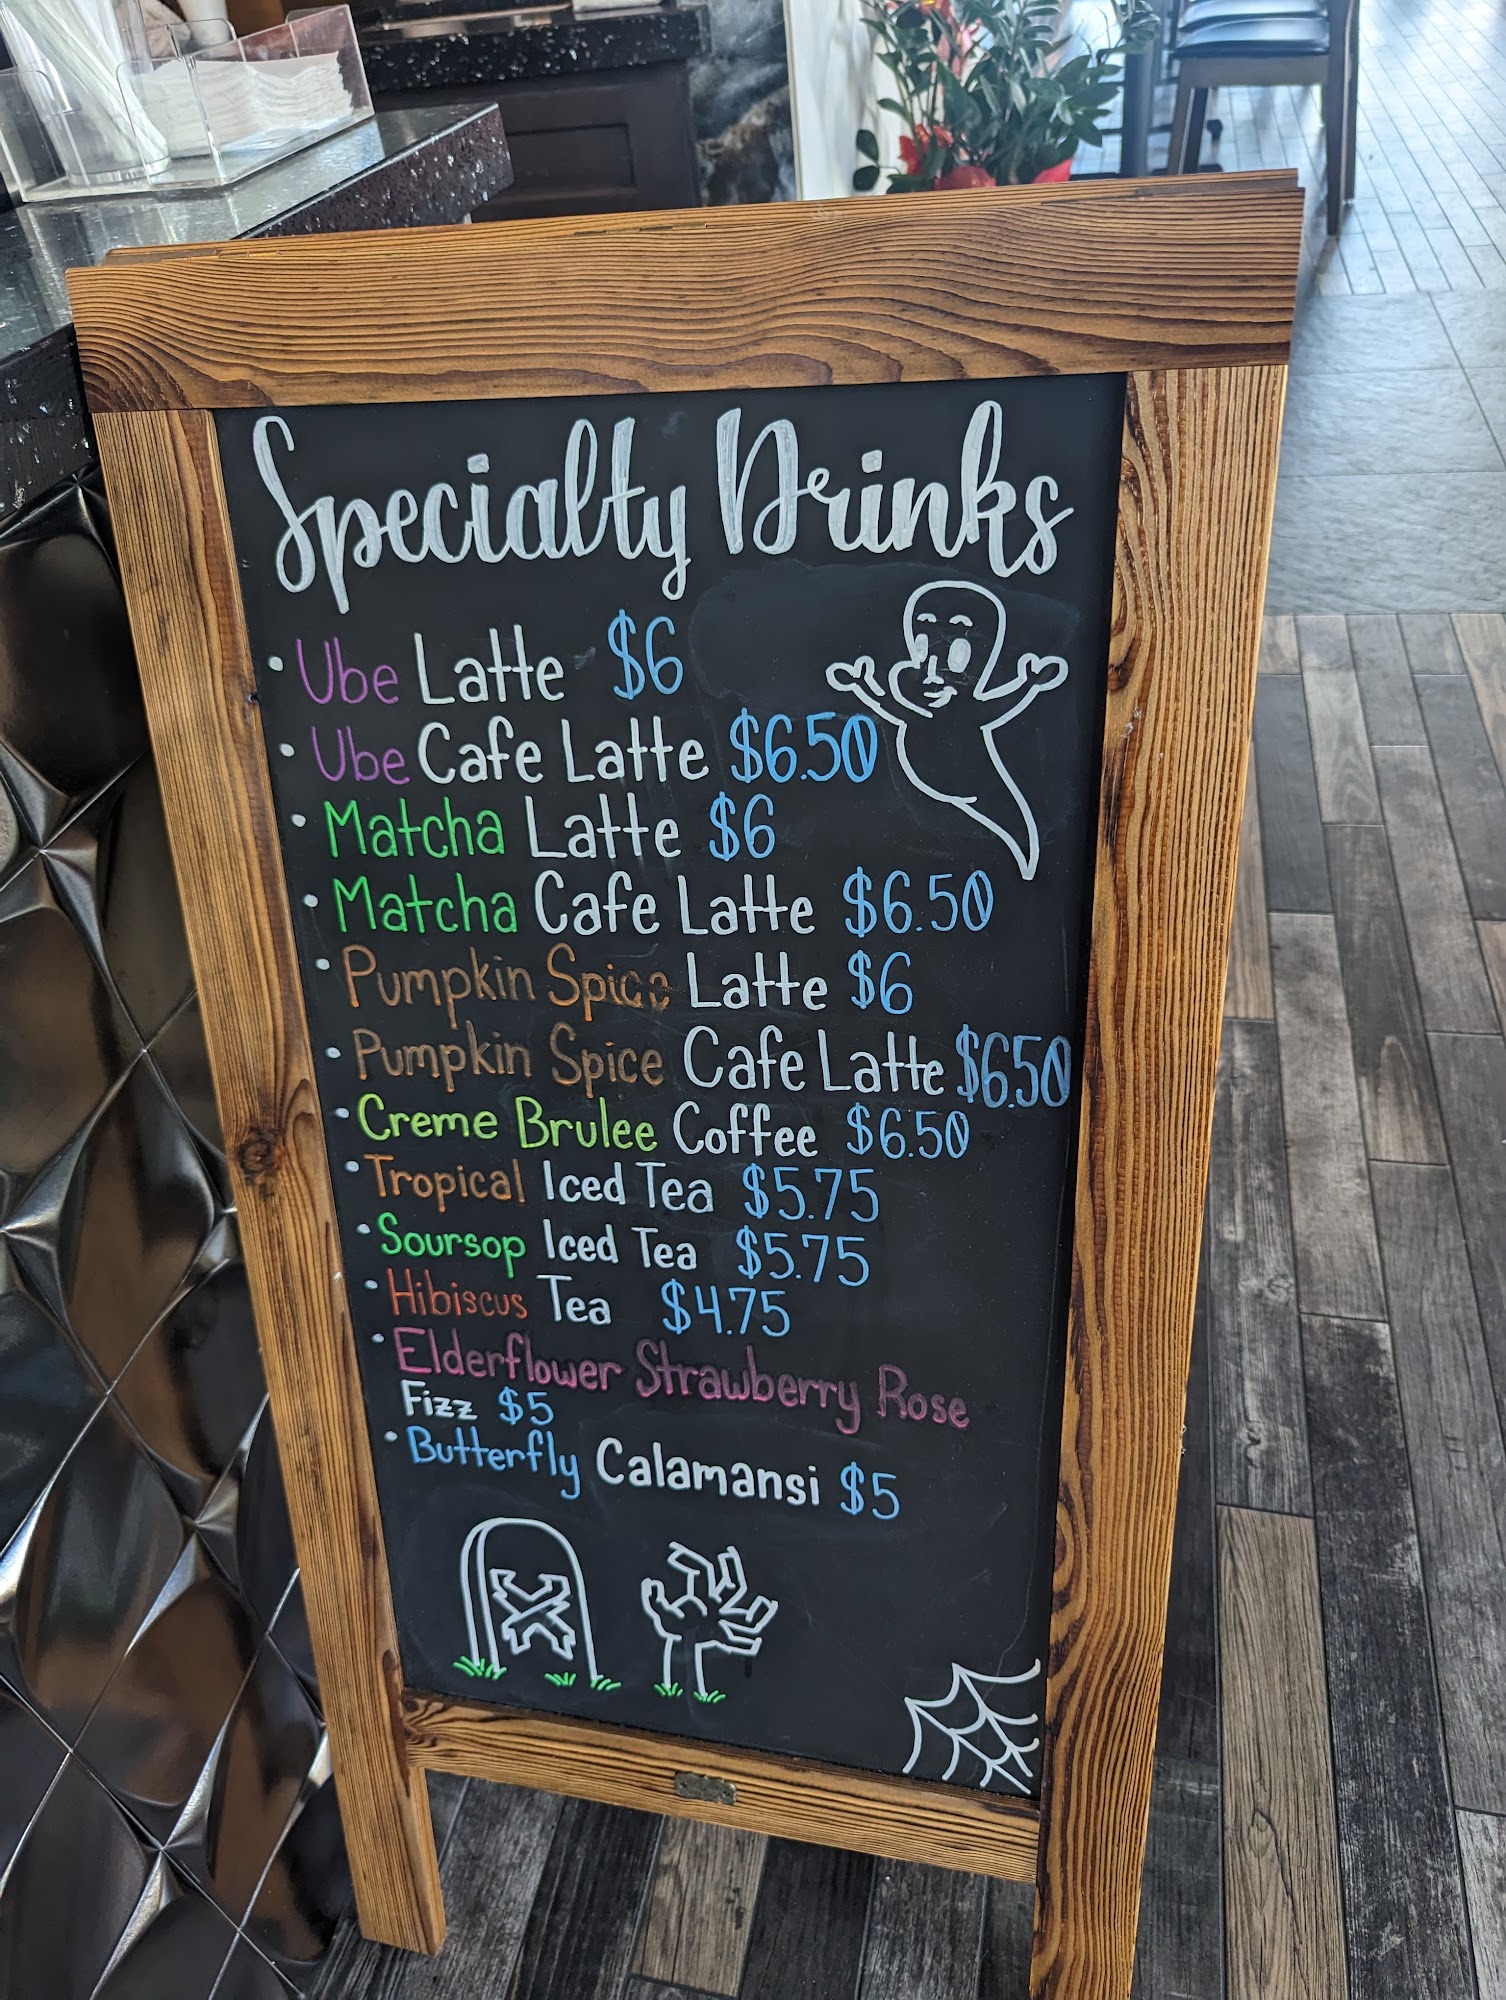 Specialty Drinks
• Ube Latte $6
• Ube Cafe Latte $6.50
• Matcha Latte $6
• Matcha Cafe Latte $6.50
• Pumpkin Spice Latte $6
• Pumpkin Spice Cafe Latte $6.50
• Creme Brulee Coffee $6.50
• Tropical Iced Tea $5.75
• Soursop Iced Tea $5.75
• Hibiscus Tea $4.75
• Elderflower Strawberry Rose
Fizz $5
• Butterfly Calamansi $5